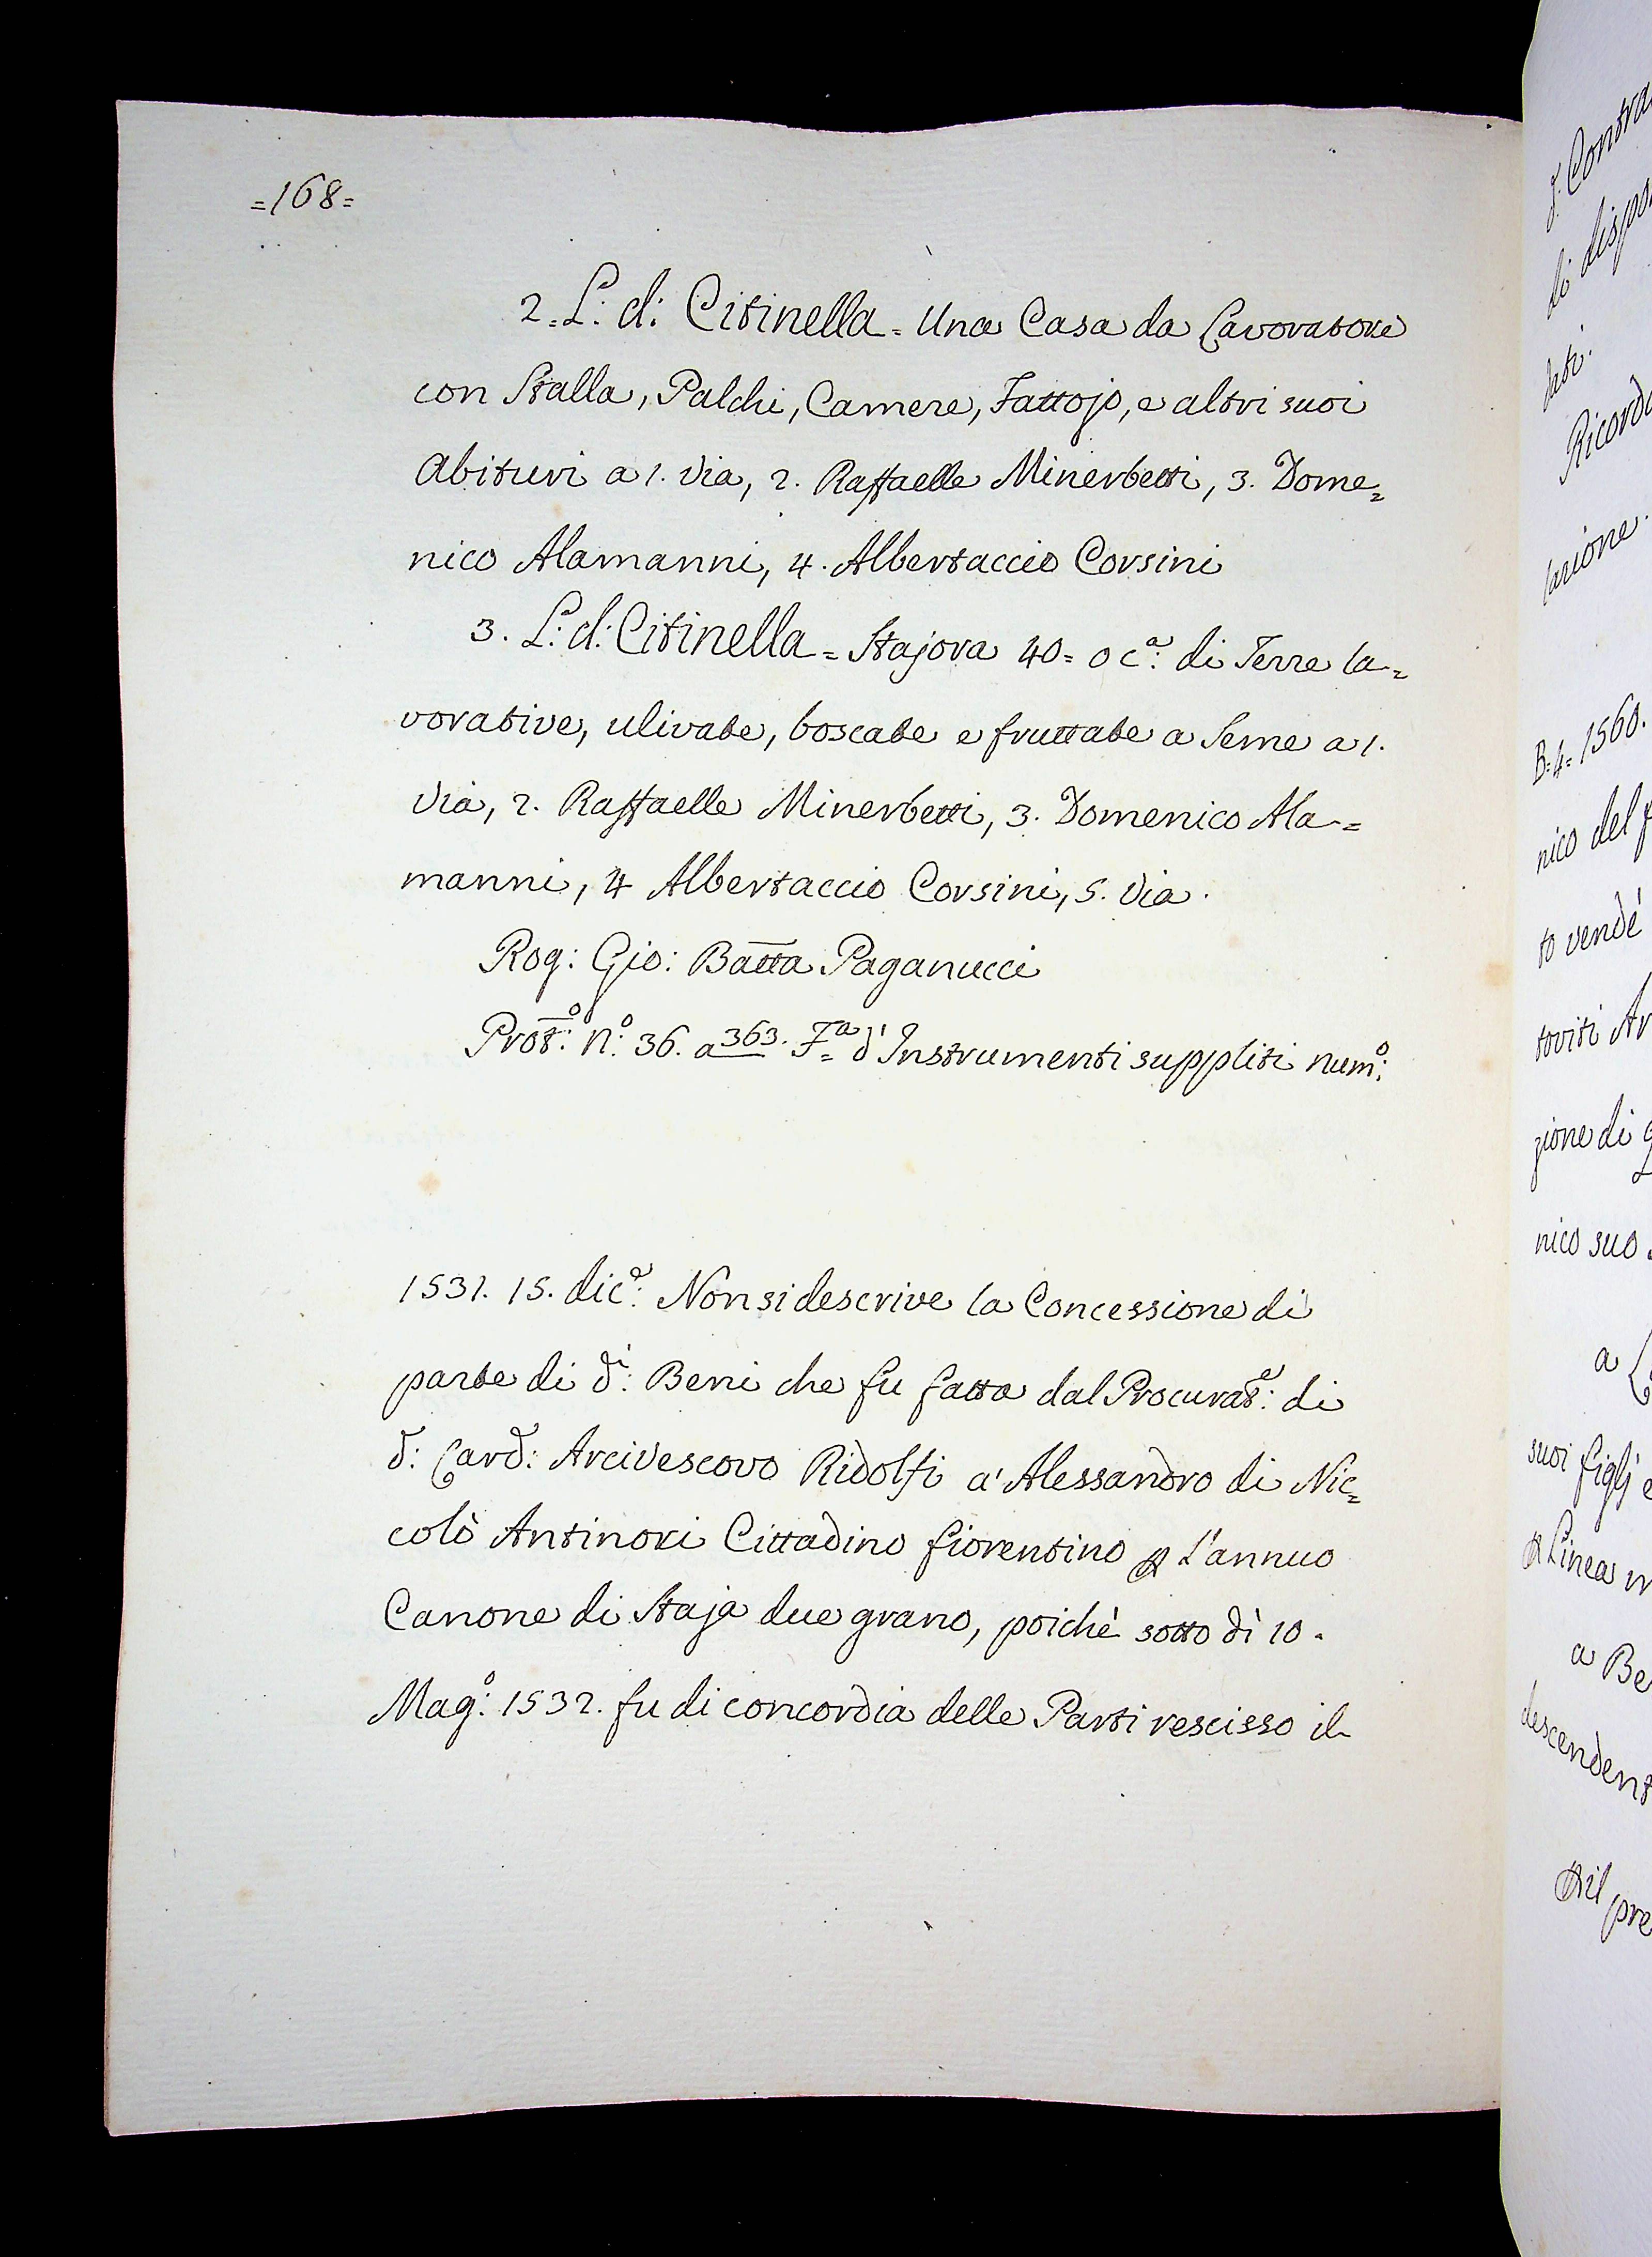 =168=
2. L: d: Citinella = Una Casa da Lavoratore
con Stalla, Palchi, Camere, Fattojo, e altri suoi
Abituri a 1. Via, 2. Raffaelle Minerbetti, 3. Dome=
nico Alamanni, 4. Albertaccio Corsini
3. L: d: Citinella = Stajora 40 = o cª: di Terre la=
vorative, ulivate, boscate e fruttate a Seme a 1.
Via, 2. Raffaelle Minerbetti, 3. Domenico Ala=
manni, 4 Albertaccio Corsini, 5. Via.
Rog: Gio: Batta Paganucci
Protº: Nº: 36. a 363. Fª= d'Instrumenti suppliti numº:
1531. 15. dicᵉ: Non si descrive la Concessione di
parte di dⁱ: Beni che fu fatta dal Procuratᵉ: di
d: Card: Arcivescovo Ridolfi a' Alessandro di Nic=
colò Antinori Cittadino fiorentino ꝑ l'annuo
Canone di Staja due grano, poichè sotto dì 10.
Magº: 1532. fu di concordia delle Parti rescisso il
d. Contra
di dispo
Ricord
lazione.
B=4=1560.
nico del f
to vendè
toviti An
zione di q
nico suo
a L
suoi figlj e
ꝑ Linea m
a Be
descendent
ꝑ il pre